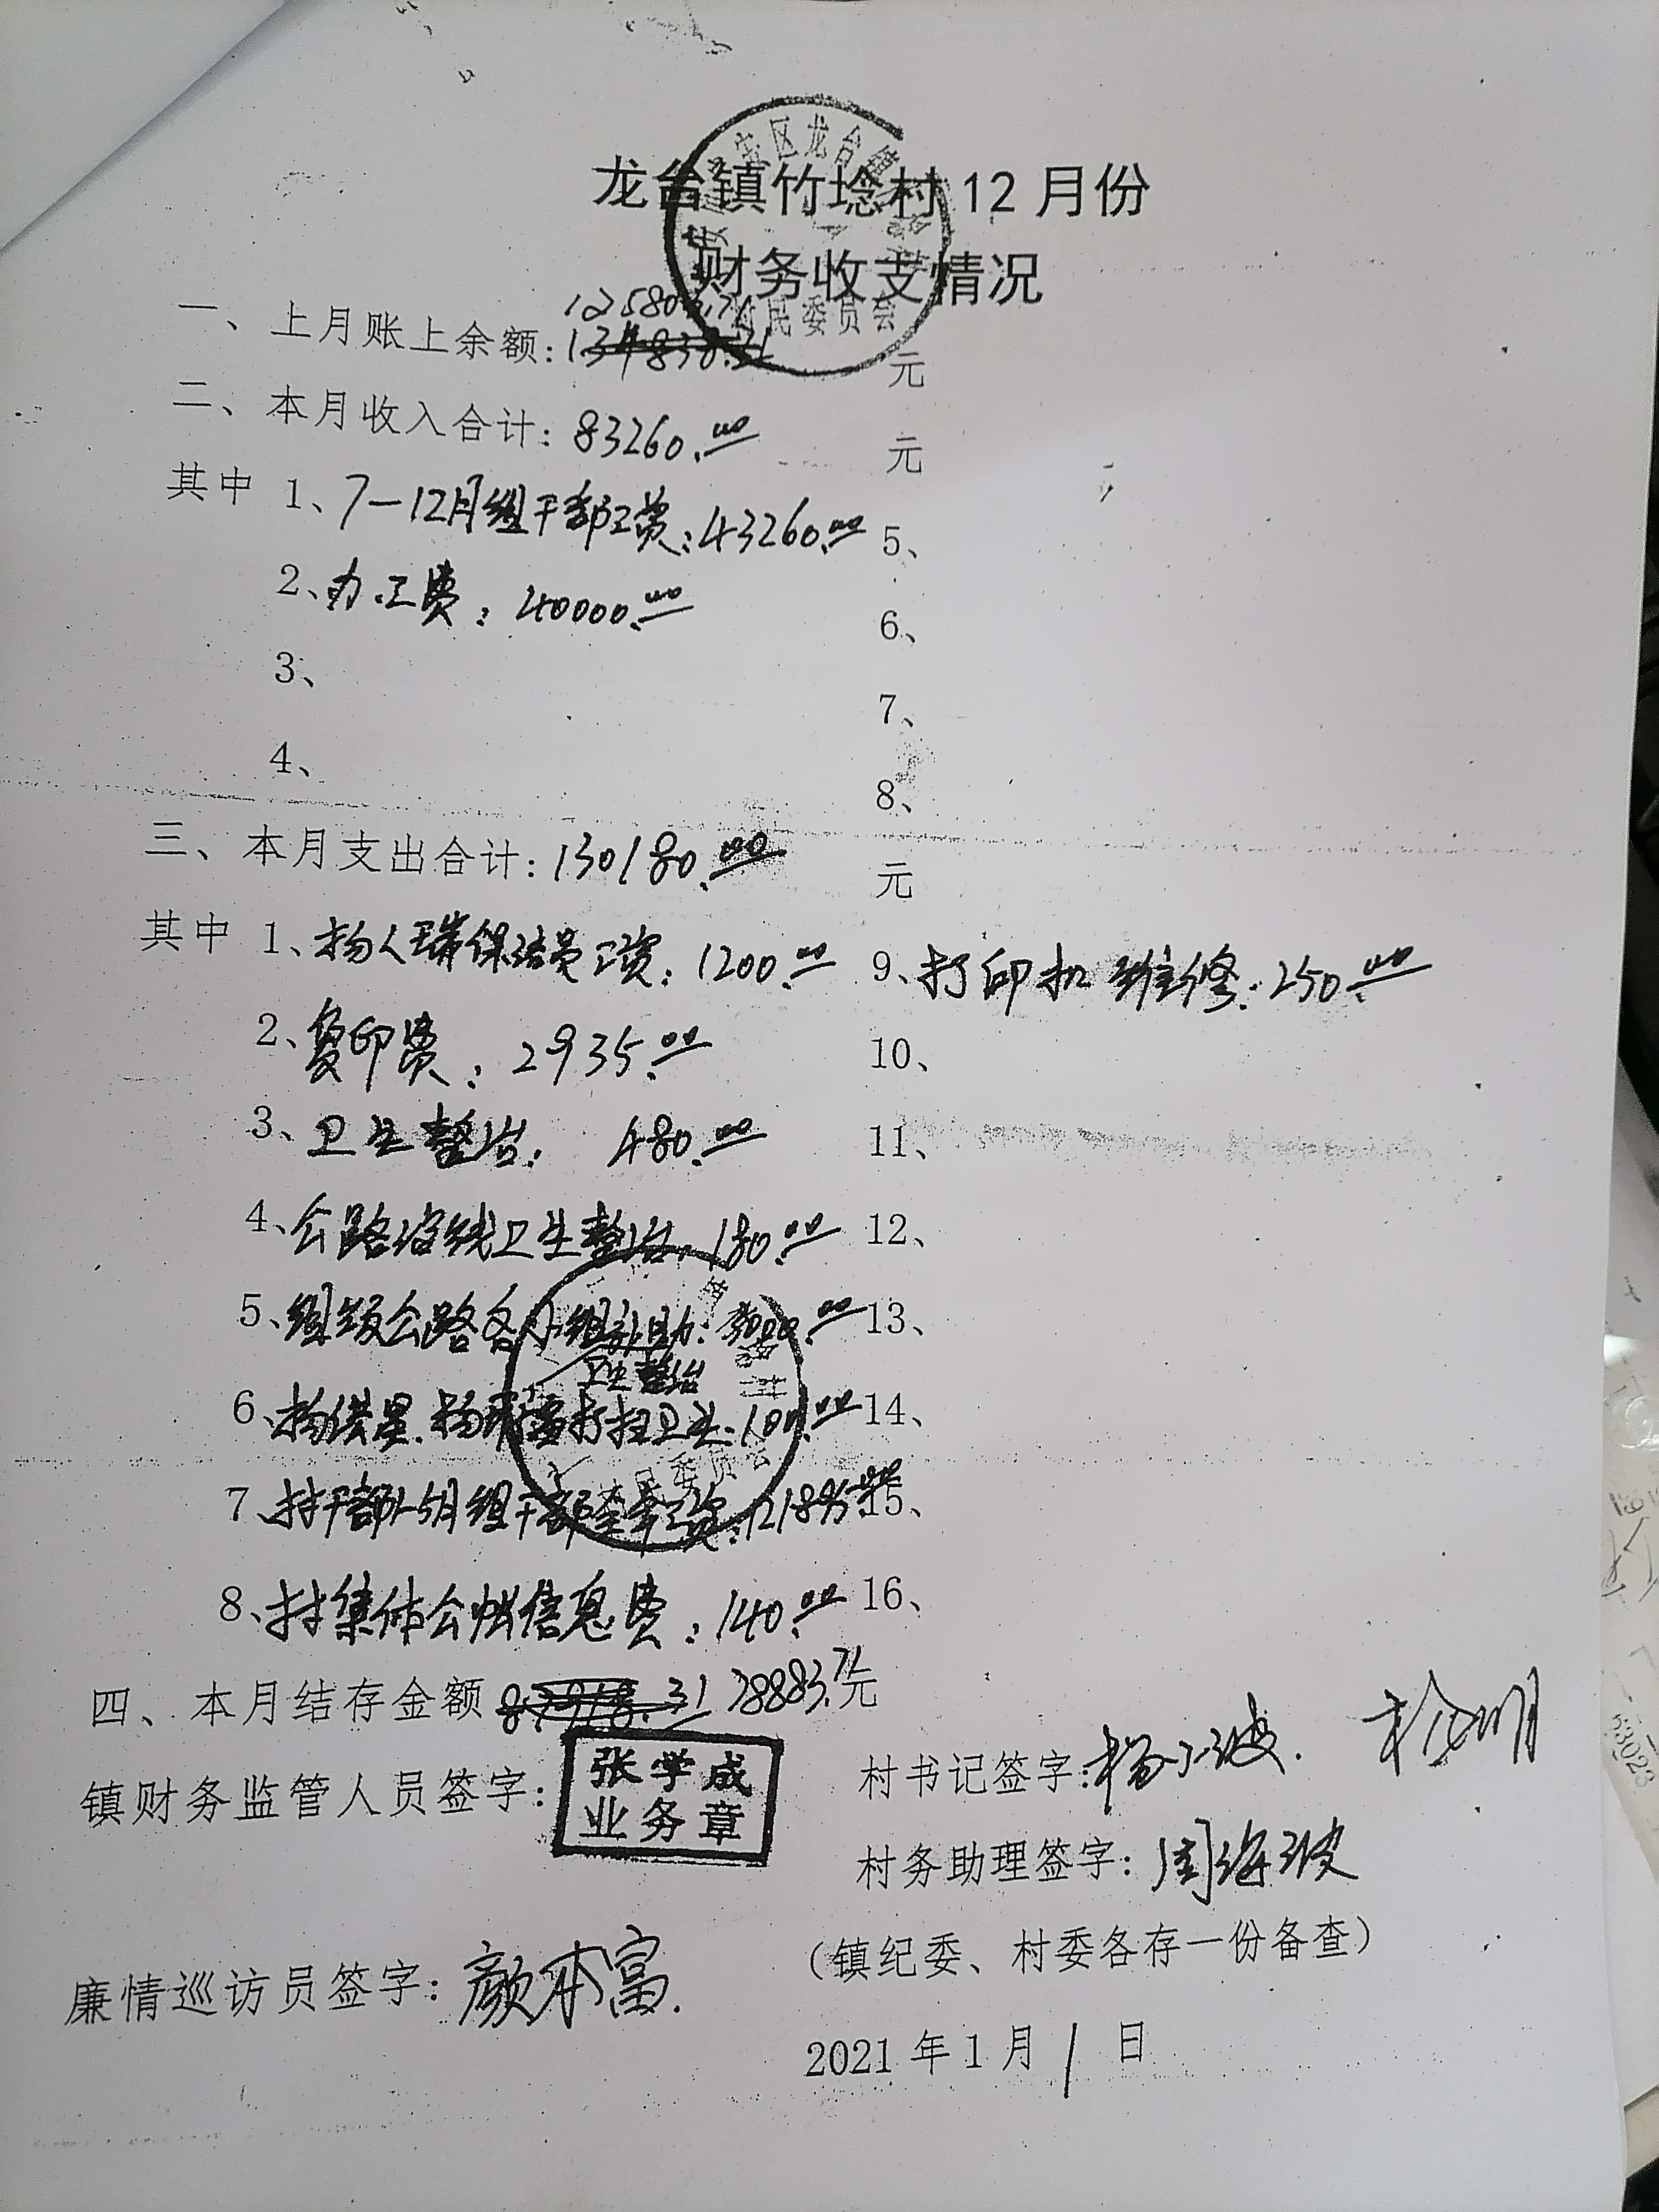 龙台镇竹埝村12月份
财务收支情况
区龙台镇
村民委员会
一、上月账上余额：125803.71元
134838.31
二、本月收入合计：83260.00元
其中 1、7-12月组干部工资：43260.00 5、
2、办工费：40000.00 6、
3、 7、
4、 8、
三、本月支出合计：130180.00元
其中 1、杨人瑞保洁员工资：1200.00 9、打印机维修：250.00
2、复印费：2935.00 10、
3、卫生整治：480.00 11、
4、公路沿线卫生整治：180.00 12、
5、组级公路各小组补助：3000.00 13、
卫生整治
6、杨洪星、杨 打扫卫生：100.00 14、
7、村干部1-5月组干部全年工资：121895.00 15、
8、村集体公 信息费：140.00 16、
四、本月结存金额 87918.31 78883.71元
镇财务监管人员签字：张学成
业务章
村书记签字：杨小波
村务助理签字：周海波
（镇纪委、村委各存一份备查）
廉情巡访员签字：颜本富
2021年1月1日